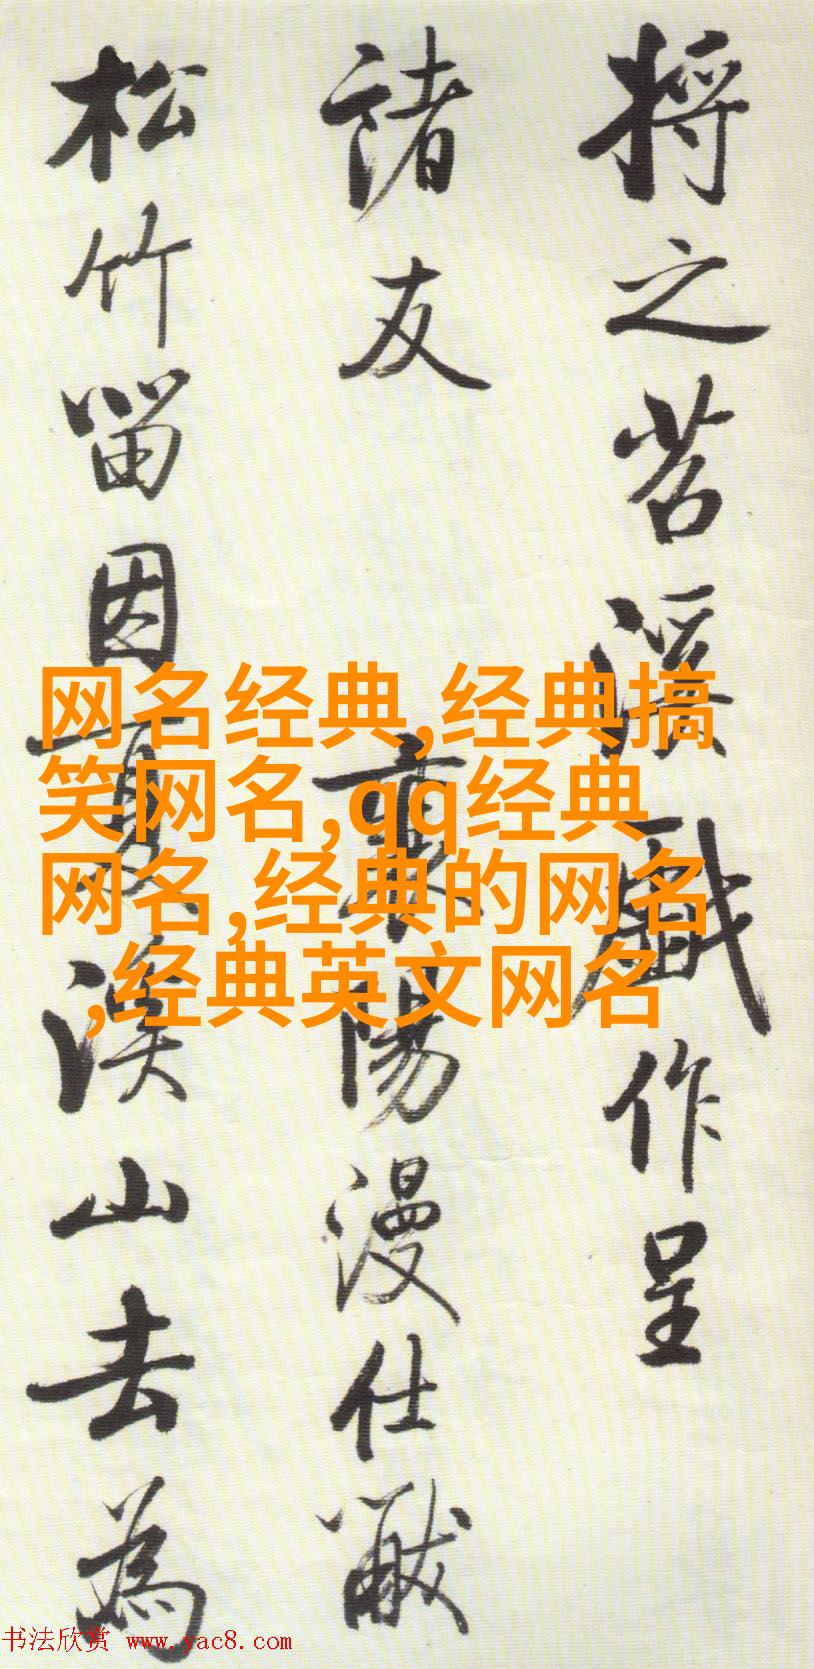 将之苕溪戲作呈
諸友
襄陽漫仕黻
松竹留因夏溪山去為
网名经典,经典搞
笑网名,qq经典
网名,经典的网名
,经典英文网名
书法欣赏 www.yac8.com